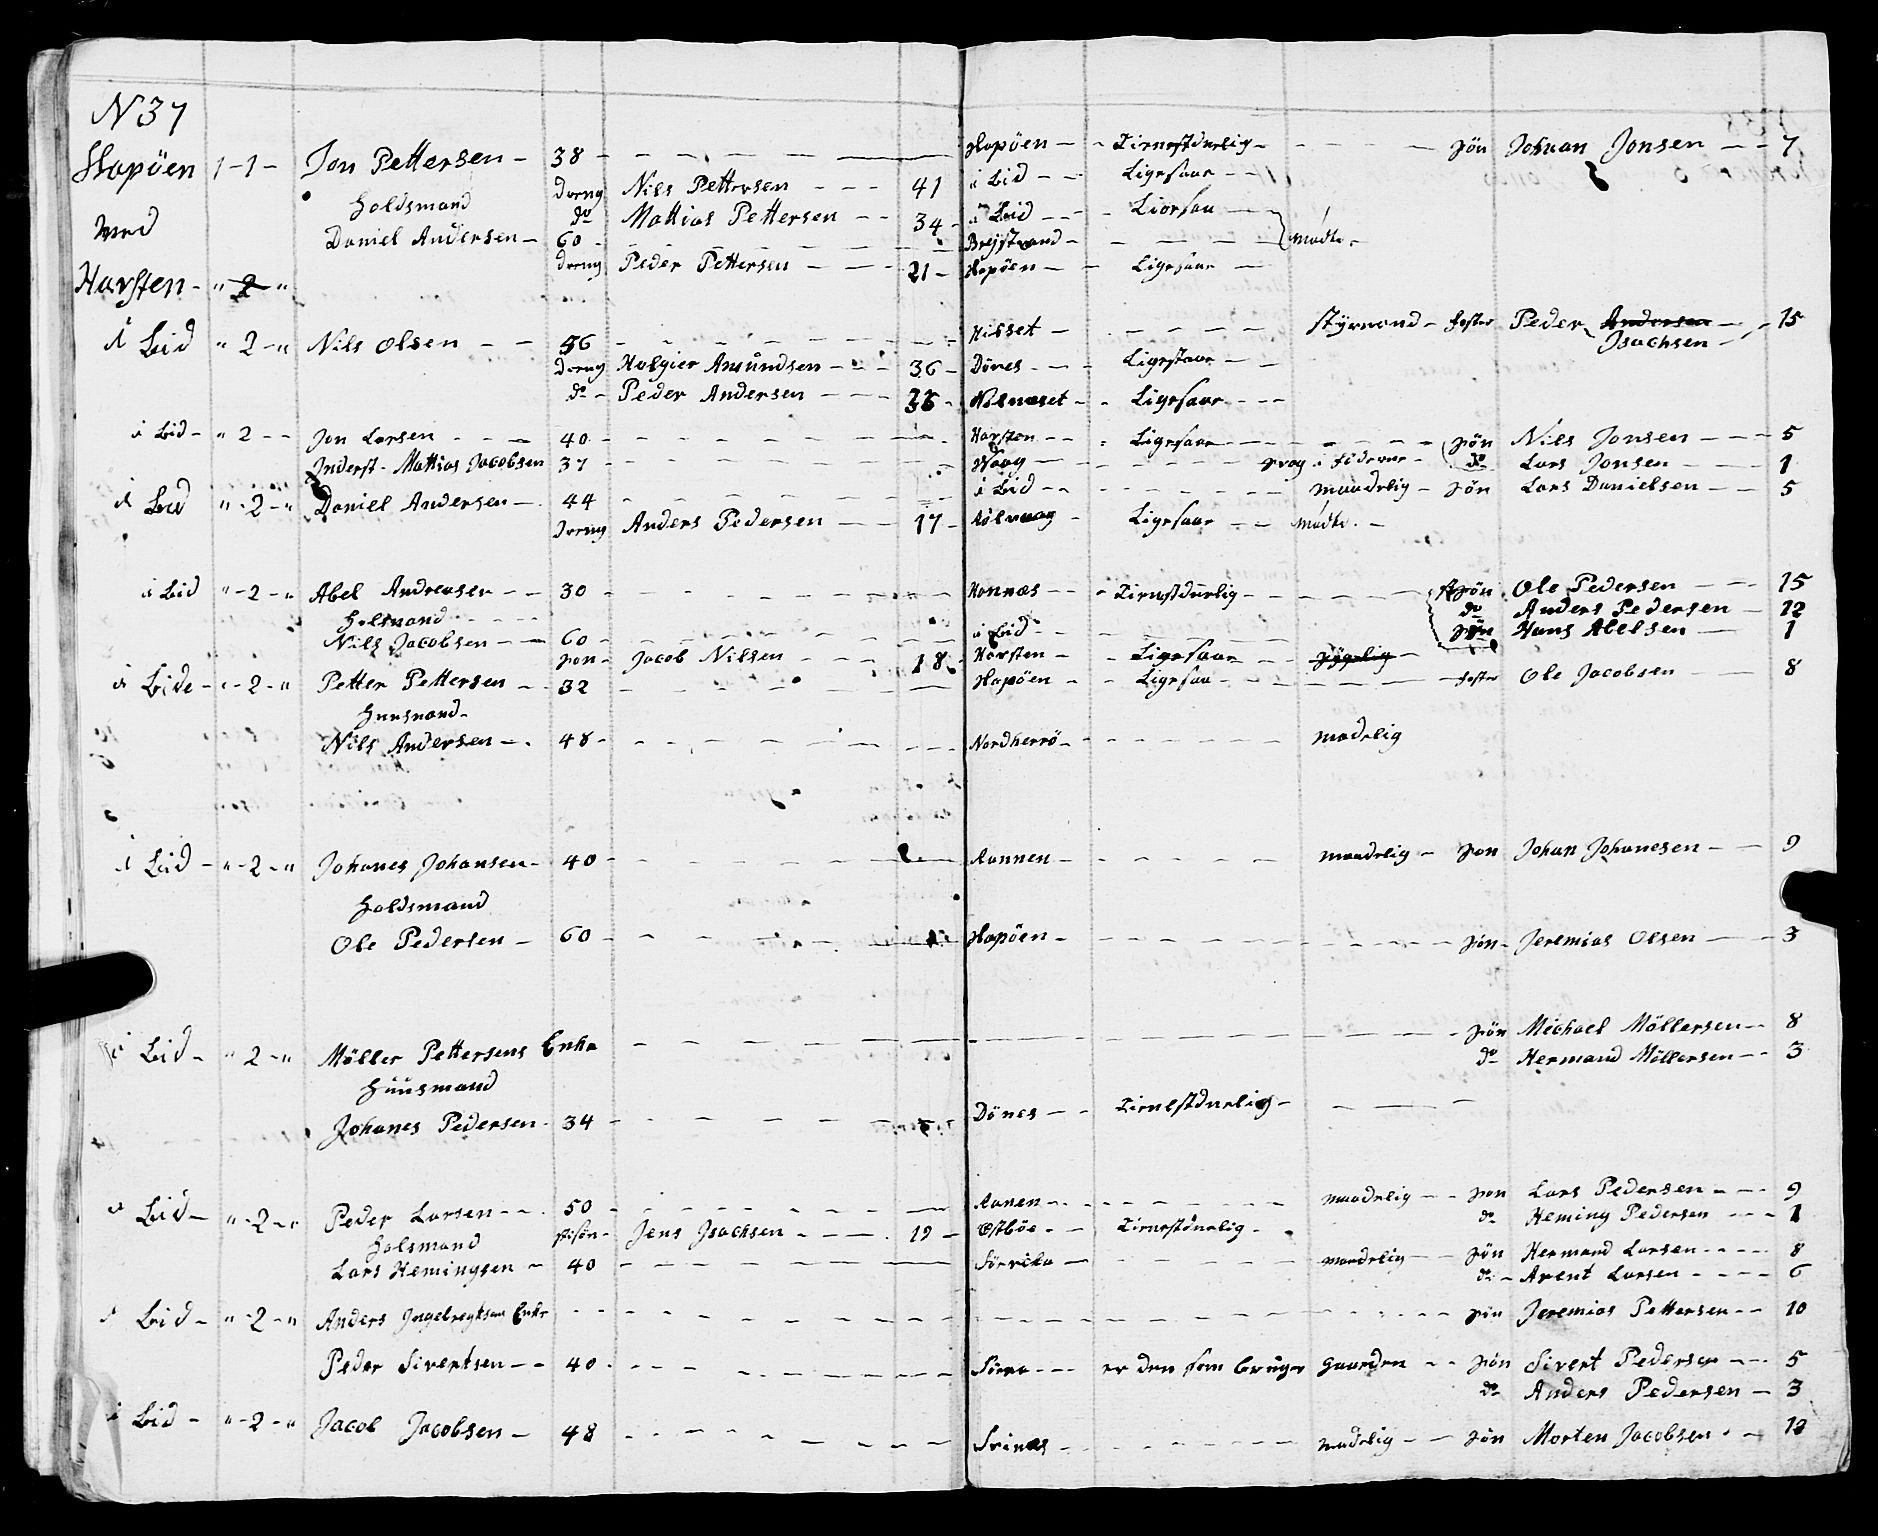 N 37
Hapöen 1-1- Jon Pettersen - 38 - Hapöen - - Tienestduelig - Sön Johan Jonsen - - 7
Dreng Nils Pettersen - - - 41 i Lid - - Ligesaa - -
Holdsmand do Mattias Pettersen - - 34 - i Lid - - - Ligesaa
med Daniel Andersen - 60 - Brejstrand - Mådtl. -
Dreng Peder Pettersen - - - 21 - Hapöen - - Ligesaa -
Harsten - " 2 "
i Lid " 2 - " Nils Olsen - - 56 Hilset - Styrmand - foster Peder Andersen - - 15
Isachsen
Dreng Holgier Amundsen - - - 36 - Dönes - - - Ligesaa - -
do - Peder Andersen - - - 36 - Ligesaa - - -
i Lid - " 2 - - Jon Larsen - - - 40 - Harsten - - - Ligesaa - Sön Nils Jonsen - - - 5
Inderst - Mattias Jacobsen 37 - Waag - do Lars Jonsen - - - 1
i Lid " - 2 - " Daniel Andersen - 44 i Lid - - maadelig - Sön Lars Danielsen - - 5
Dreng Anders Pedersen - - - 17 - - Ligesaa - - Mådtl. -
i Lid " - 2 - " Abel Andreasen - - 30 - Hannæs - - - Tienestduelig - Sön Ole Pedersen - - - 15
do Anders Pedersen - 12
Holsmand - - - -
Nils Jacobsen - - 60 - i Lid - Sön Hans Abelsen - 1
Sön - Jacob Nilsen - - - - 18 - Harsten - Ligesaa - -
i Lide - " - 2 - " Petter Pettersen - - 32 Hapöen - - Ligesaa - foster Ole Jacobsen 8
Huusmand -
Nils Andersen - . 48 - Nordherrö - madelig
i Lid - " - 2 - " Johanes Johansen - 40 - Rannen - maadelig - Sön Johan Johanesen - - 9
Holdsmand
Ole Pedersen - 60 - Hapöen - Sön - Jeremias Olsen - - 3
i Lid - " - 2 - " Möller Pettersens Enke Sön Michael Möllersen - - 8
do Hermand Möllersen - - 3
Huusmand
Johanes Pedersen - 34 - Dönes - - Tienestduelig -
i Lid - " - 2 - " Peder Larsen - - . 50 - Ranen - maadelig - - Sön Lars Pedersen - - - 9
do Heming Pedersen - - - 1
Jens Isachsen - - - - . 19 - Östböe - - Tienestduelig -
Holsmand
Lars Hemingsen - 40 - Sörvika - maadelig - Sön Hermand Larsen - - - - 8
do - Arent Larsen - - - - 6
i Lid - " - 2 - " Anders Ingebregtsen Enke Sön Jeremias Pettersen - - 10
Peder Sivertsen - - 40 - Sörra - - - er den som bruger Gaarden - - Sön Sivert Pedersen - - - 5
do Anders Pedersen - 3
i Lid - " - 2 - " Jacob Jacobsen - 48 Svines - madelig - - Sön Morten Jacobsen - - 12